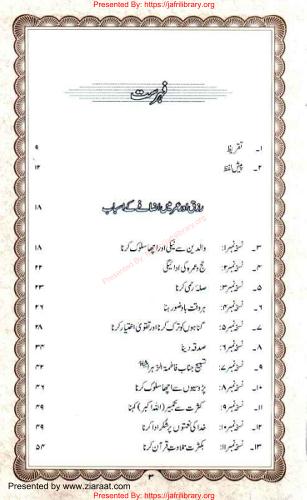 Presented By: https://jafrilibrary.org
فہرست
۱۔ تقریظ ۹
۲۔ پیش لفظ ۱۲
رزق اور عمر میں اضافے کے اسباب ۱۸
۳۔ نسخہ نمبر۱: والدین سے نیکی اور اچھا سلوک کرنا ۱۸
۴۔ نسخہ نمبر۲: حج و عمرہ کی ادائیگی ۲۲
۵۔ نسخہ نمبر۳: صلۂ رحمی کرنا ۲۳
۶۔ نسخہ نمبر۴: ہر وقت با وضو رہنا ۲۶
۷۔ نسخہ نمبر۵: گناہوں کو ترک کرنا اور تقویٰ اختیار کرنا ۲۸
۸۔ نسخہ نمبر۶: صدقہ دینا ۳۴
۹۔ نسخہ نمبر۷: تسبیح جناب فاطمۃ الزہرا ۴۲
۱۰۔ نسخہ نمبر۸: پڑوسیوں سے اچھا سلوک کرنا ۴۶
۱۱۔ نسخہ نمبر۹: کثرت سے تکبیر (اللہ اکبر) کہنا ۴۹
۱۲۔ نسخہ نمبر۱۰: خدا کی نعمتوں پر شکر ادا کرنا ۴۹
۱۳۔ نسخہ نمبر۱۱: بکثرت تلاوت قرآن کرنا ۵۴
Presented By: https://jafrilibrary.org
۳
www.ziaraat.com
Presented By: https://jafrilibrary.org